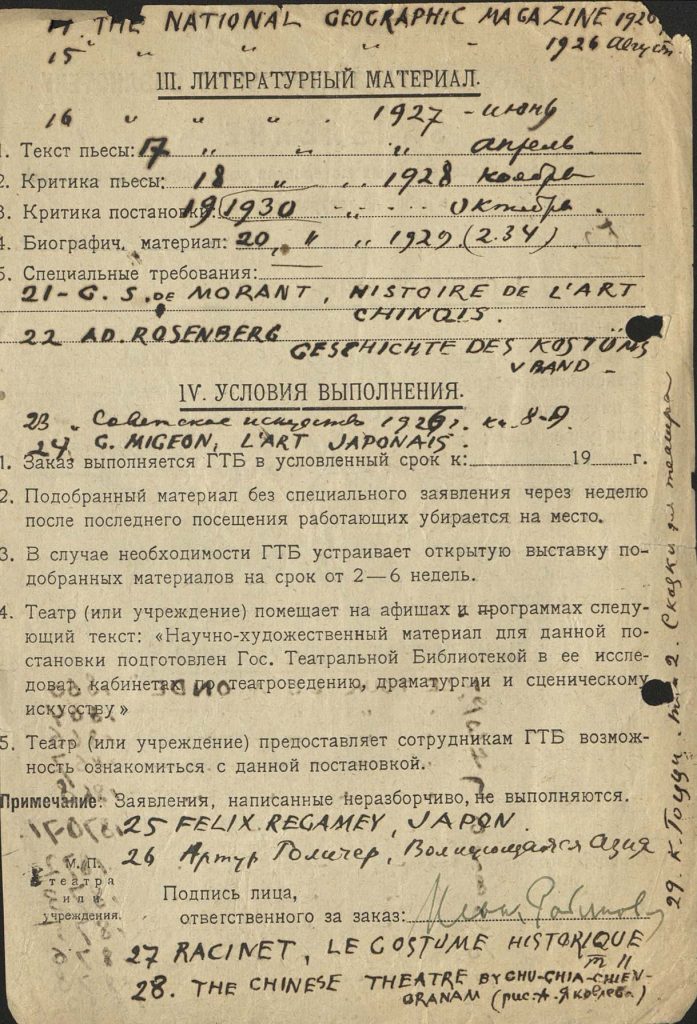 THE NATIONAL GEOGRAPHIC MAGAZINE 1926
15 " " " " - 1926 Август
III. ЛИТЕРАТУРНЫЙ МАТЕРИАЛ.
16 " " " . 1927 - июнь
1. Текст пьесы: 17 " " " апрель
2. Критика пьесы: 18 " " 1928 ноябрь
3. Критика постановки: 19 1930 " октябрь.
4. Биографич. материал: 20, " " 1929. (2.34)
5. Специальные требования:
21 - G. S. DE MORANT, HISTOIRE DE L'ART
CHINOIS.
22 AD. ROSENBERG
GESCHICHTE DES KOSTÜMS
V BAND -
IV. УСЛОВИЯ ВЫПОЛНЕНИЯ.
23 " Советское искусство 1926 г. кн. 8-9.
24. G. MIGEON, L'ART JAPONAIS.
1. Заказ выполняется ГТБ в условленный срок к: 19 г.
2. Подобранный материал без специального заявления через неделю
после последнего посещения работающих убирается на место.
3. В случае необходимости ГТБ устраивает открытую выставку по-
добранных материалов на срок от 2—6 недель.
4. Театр (или учреждение) помещает на афишах и программах следу-
ющий текст: «Научно-художественный материал для данной по-
становки подготовлен Гос. Театральной Библиотекой в ее иссле-
доват. кабинетах по театроведению, драматургии и сценическому
искусству»
5. Театр (или учреждение) предоставляет сотрудникам ГТБ возмож-
ность ознакомиться с данной постановкой.
Примечание: Заявления, написанные неразборчиво, не выполняются.
25 FELIX REGAMEY, JAPON.
26 Артур Голичер, Волнующаяся Азия
М. П.
театра
или
учреждения.
Подпись лица,
ответственного за заказ:
27 RACINET, LE COSTUME HISTORIQUE
т II
28. THE CHINESE THEATRE BY CHU-CHIA-CHIEN-
GRANAM (рис. А. Яковлева)
29. К. Гоцци. 2. Сказки для театра